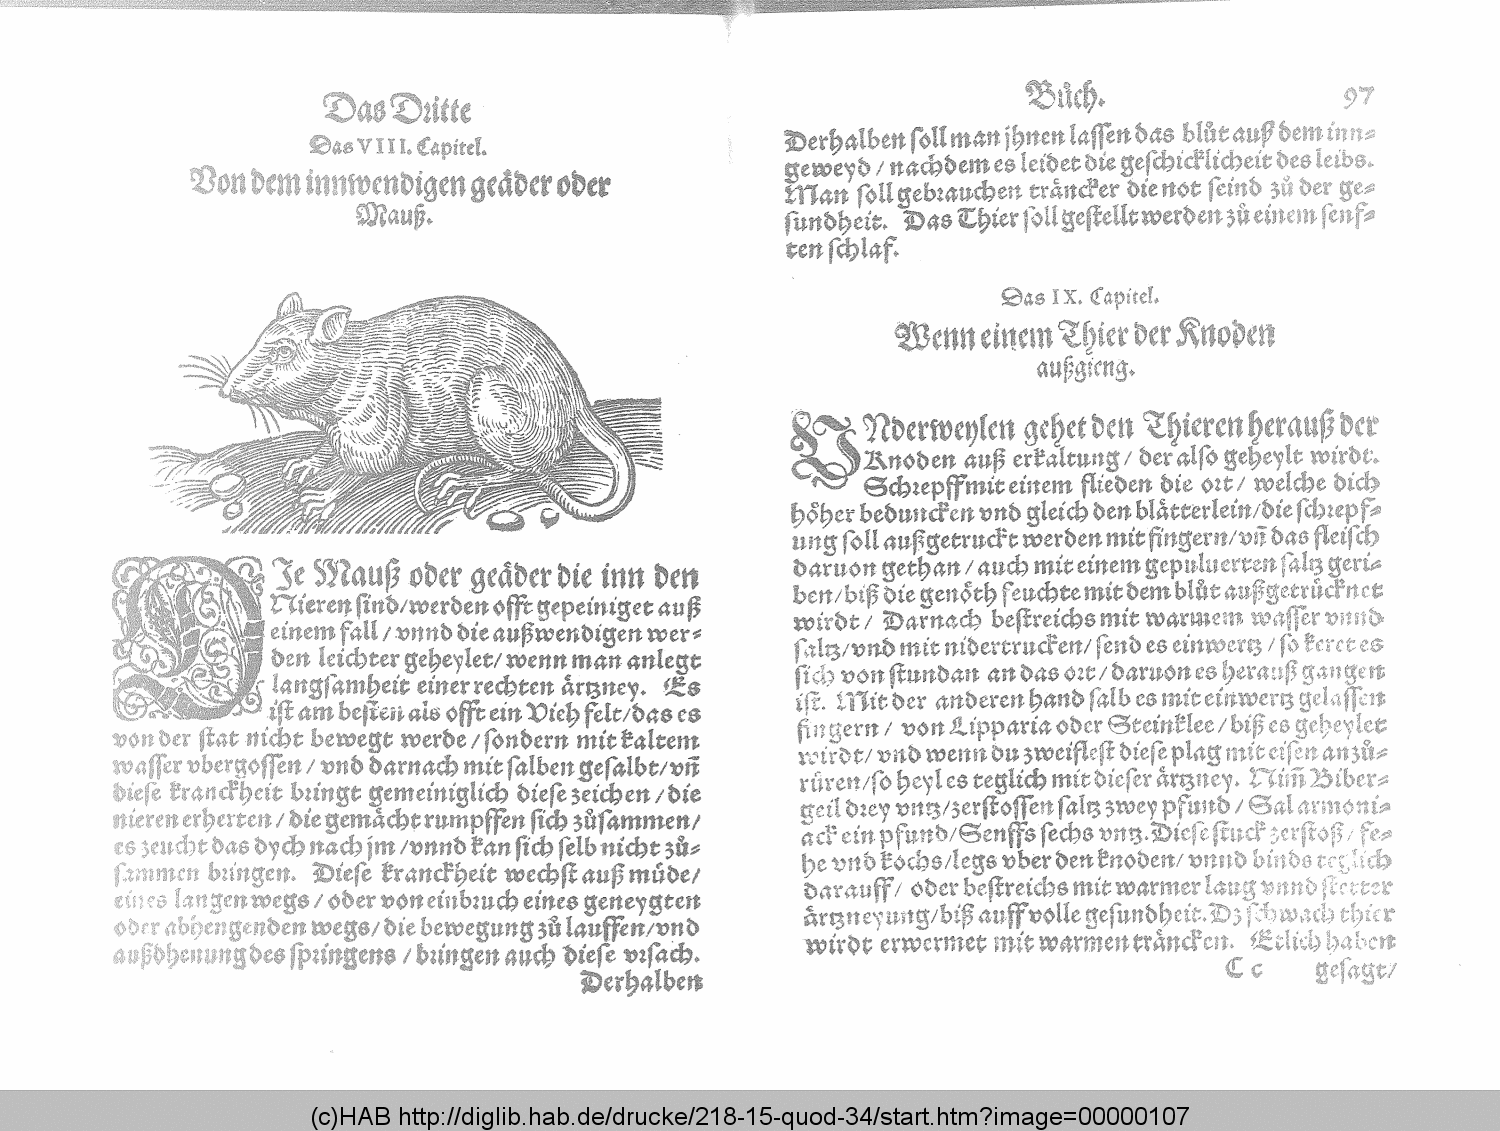 Das Dritte
Das VIII. Capitel.
Von dem innwendigen geåder oder
Mauß.
DIe Mauß oder geåder die inn den
Nieren sind/werden offt gepeiniget auß
einem fall / vnnd die außwendigen wer⸗
den leichter geheylet/ wenn man anlegt
langsamheit einer rechten årtzney. Es
ist am besten als offt ein Vieh felt/das es
von der stat nicht bewegt werde / sondern mit kaltem
wasser vbergossen / vnd darnach mit salben gesalbt/vñ
diese kranckheit bringt gemeiniglich diese zeichen / die
nieren erherten / die gemåcht rumpffen sich zůsammen/
es zeucht das dych nach jm /vnnd kan sich selb nicht zů⸗
sammen bringen. Diese kranckheit wechst auß müde/
eines langen wegs / oder von einbruch eines geneygten
oder abhengenden wegs/ die bewegung zů lauffen/vnd
außdhenung des springens / bringen auch diese vrsach.
Derhalben
Bůch. 97
Derhalben soll man jhnen lassen das blůt auß dem inn⸗
geweyd / nachdem es leidet die geschicklicheit des leibs.
Man soll gebrauchen tråncker die not seind zů der ge⸗
sundheit. Das Thier soll gestellt werden zů einem senf⸗
ten schlaf.
Das IX. Capitel.
Wenn einem Thier der Knoden
außgieng.
VNderweylen gehet den Thieren herauß der
Knoden auß erkaltung / der also geheylt wirdt.
Schrepff mit einem flieden die ort/ welche dich
hőher beduncken vnd gleich den blåtterlein/die schrepf⸗
ung soll außgetruckt werden mit fingern/vñ das fleisch
daruon gethan / auch mit einem gepuluerten saltz geri⸗
ben/biß die genőth feuchte mit dem blůt außgetrücknet
wirdt / Darnach bestreichs mit warmem wasser vnnd
saltz/vnd mit nidertrucken/ send es einwertz / so keret es
sich von stundan an das ort/ daruon es herauß gangen
ist. Mit der anderen hand salb es mit einwertz gelassen
fingern / von Lipparia oder Steinklee/ biß es geheylet
wirdt/ vnd wenn du zweiflest diese plag mit eisen anzů⸗
růren/so heyl es teglich mit dieser årtzney. Nim̃ Biber⸗
geil drey vntz/zerstossen saltz zwey pfund / Sal armoni⸗
ack ein pfund/Senffs sechs vntz. Diese stuck zerstoß / se⸗
he vnd kochs/legs vber den knoden/ vnnd binds teglich
darauff/ oder bestreichs mit warmer laug vnnd stetter
årtzneyung/biß auff volle gesundheit. Dz schwach thier
wirdt erwermet mit warmen tråncken. Etlich haben
C c gesagt/
(c)HAB http://diglib.hab.de/drucke/218-15-quod-34/start.htm?image=00000107